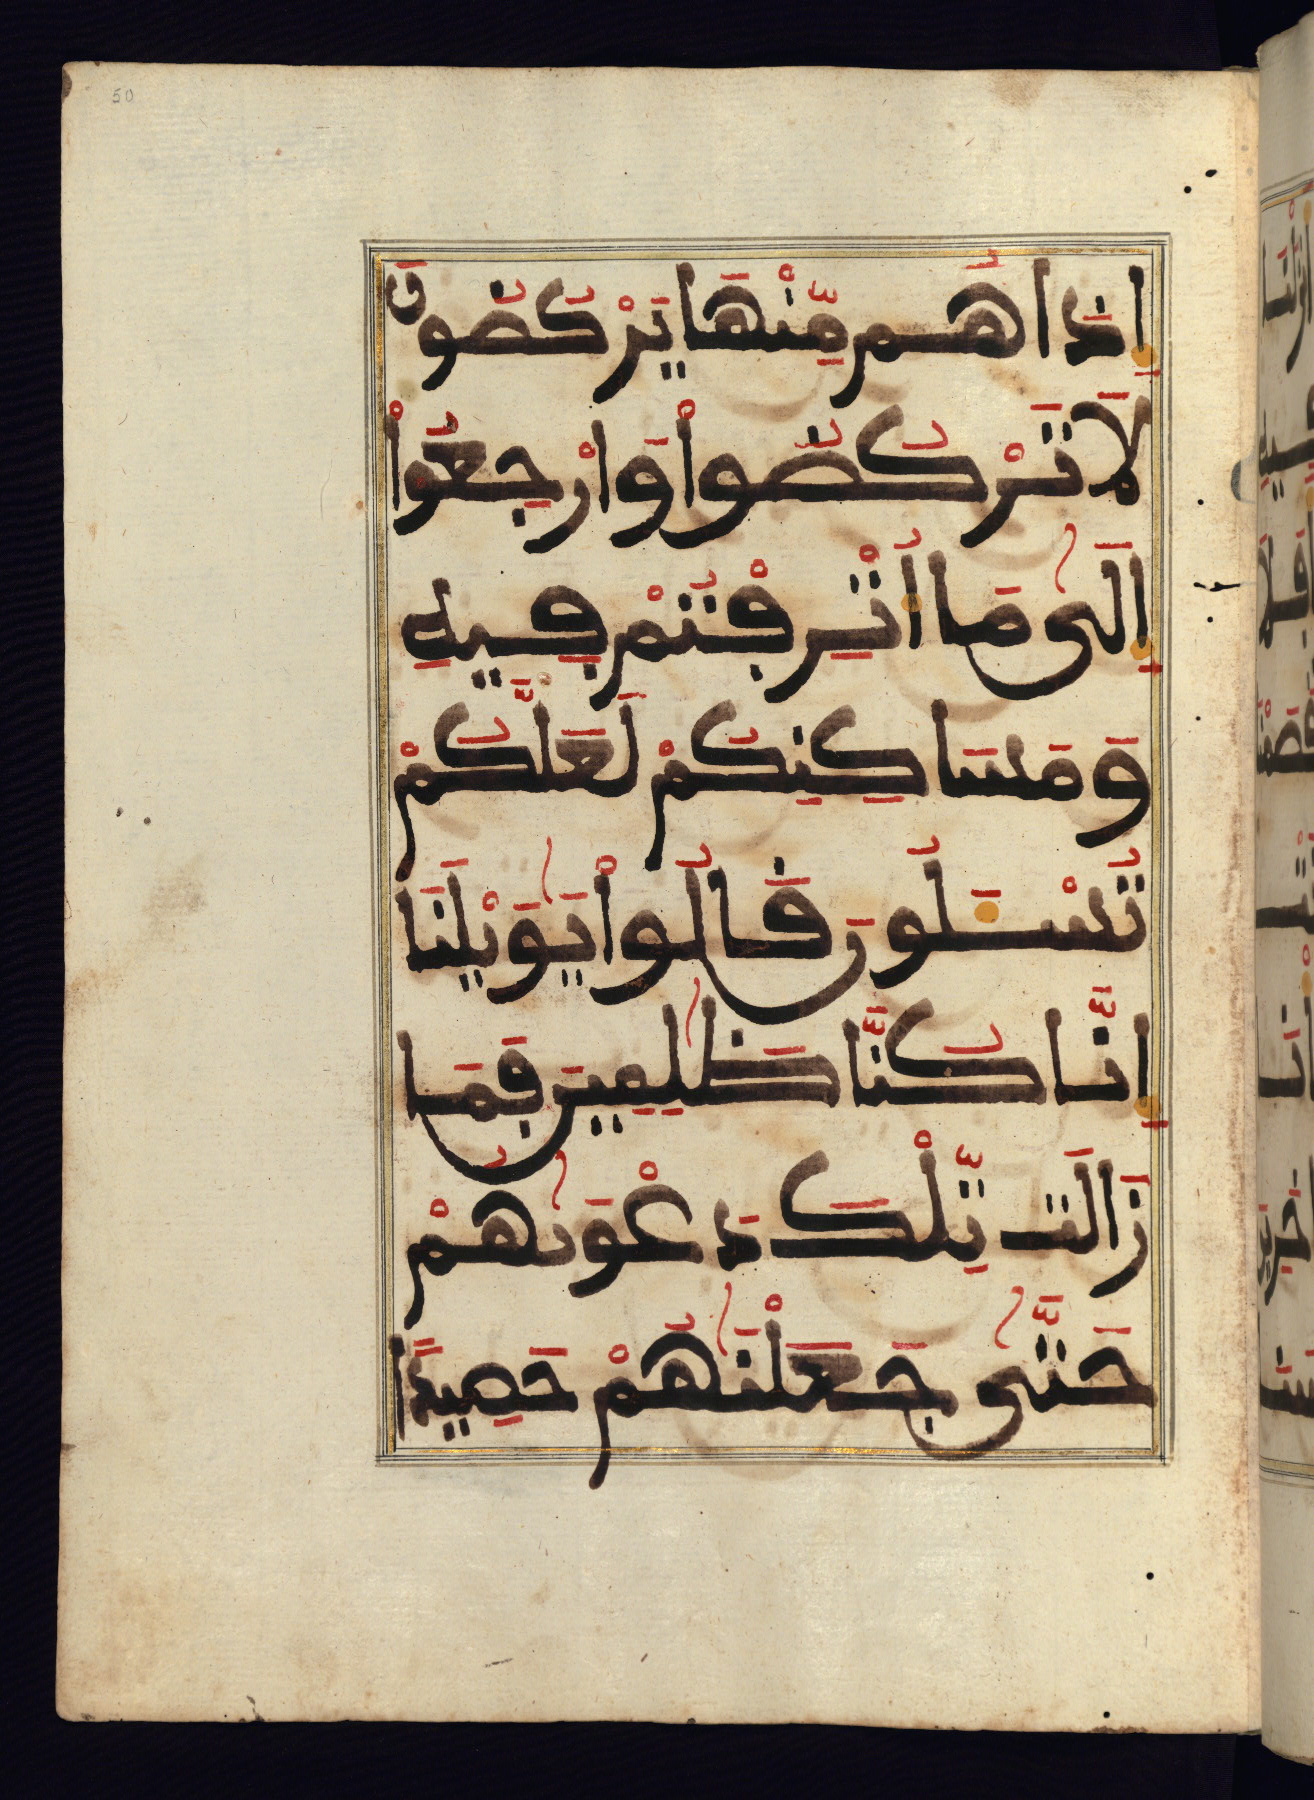 50
إِذَا هُم مِّنْهَا يَرْكُضُونَ
لَا تَرْكُضُواْ وَارْجِعُواْ
إِلَىٰ مَا أُتْرِفْتُمْ فِيهِ
وَمَسَاكِنِكُمْ لَعَلَّكُمْ
تُسْـَٔلُونَ قَالُواْ يَٰوَيْلَنَا
إِنَّا كُنَّا ظَٰلِمِينَ فَمَا
زَالَت تِّلْكَ دَعْوَىٰهُمْ
حَتَّىٰ جَعَلْنَٰهُمْ حَصِيدًا